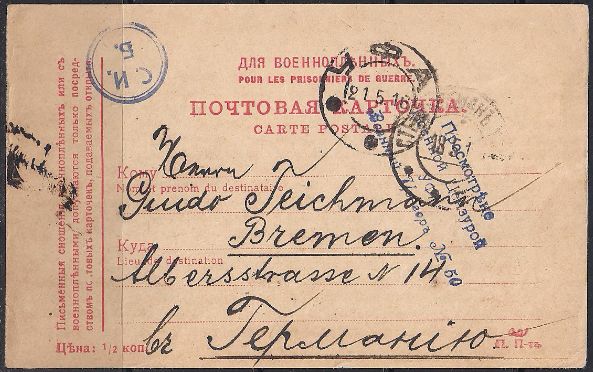 С. И.
Б.
ДЛЯ ВОЕННОПЛѢННЫХЪ.
POUR LES PRISONNIERS DE GUERRE.
УФА
21.5.16
ПОЧТОВАЯ КАРТОЧКА.
CARTE POSTALE
Просмотрѣно
Военной Цензурой
Военный Цензоръ № 50
Кому
Herrn
Nom et prenom du destinataire
Guido Teichmann
Bremen.
Куда
Lieu de destination
Albersstrasse N 14
въ Германію
Цѣна: 1/2 коп.
П. П-тъ
Письменныя сношенія военноплѣнныхъ или съ
военноплѣнными, допускаются только посред-
ствомъ почтовыхъ карточекъ, подаваемыхъ открыто.